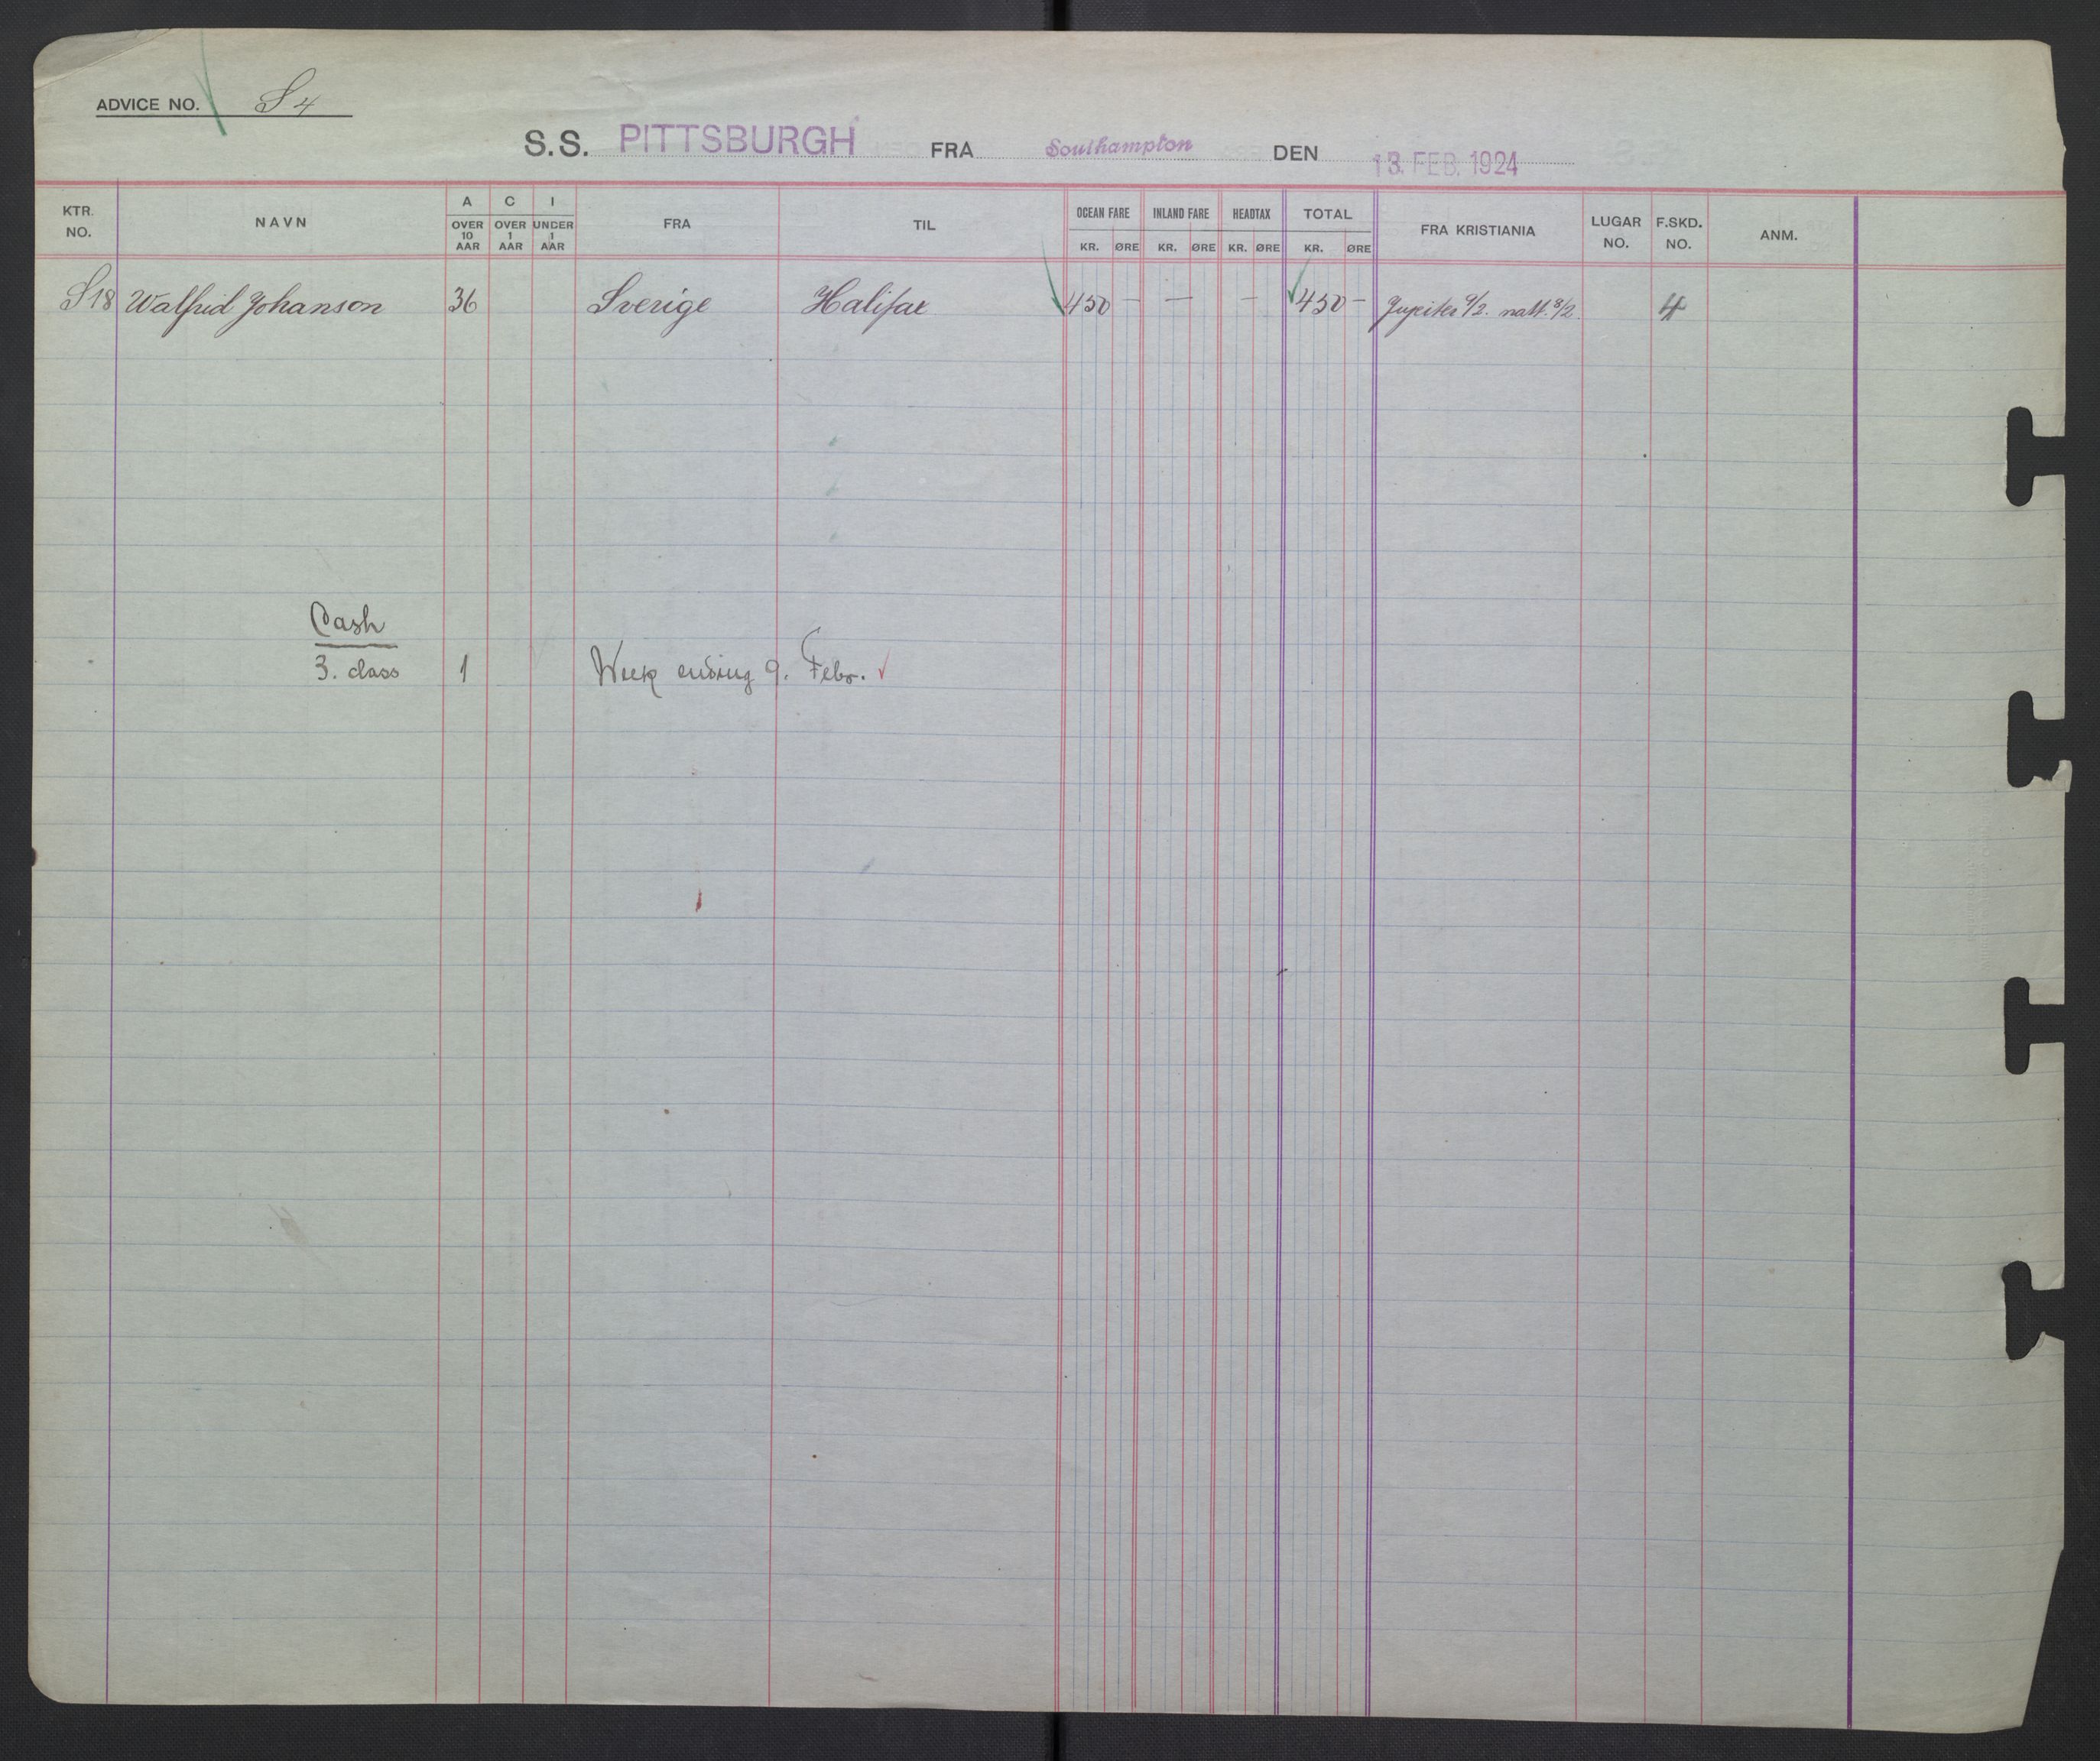 ADVICE NO. S 4
S.S. PITTSBURGH FRA Southampton DEN 13. FEB. 1924
KTR. NO. NAVN A OVER 10 AAR C OVER 1 AAR I UNDER 1 AAR FRA TIL OCEAN FARE KR. ØRE INLAND FARE KR. ØRE HEADTAX KR. ØRE TOTAL KR. ØRE FRA KRISTIANIA LUGAR NO. F.SKD. NO. ANM.
S18 Walfrid Johanson 36 Sverige Halifax 450 — — — 450 — Jupiter 9/2. natt. 8/2. 4
Cash
3. class 1 Week ending 9. Febr.